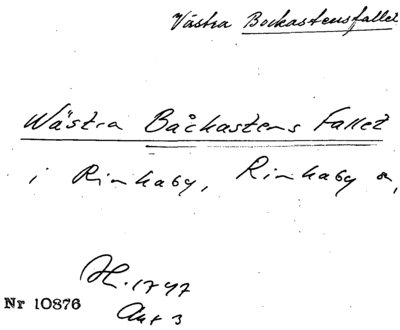 Västra Bockastensfallet
Wästra Båckastens Fallet
i Rinkaby, Rinkaby s,
H. 1797
Akt 3
Nr 10876